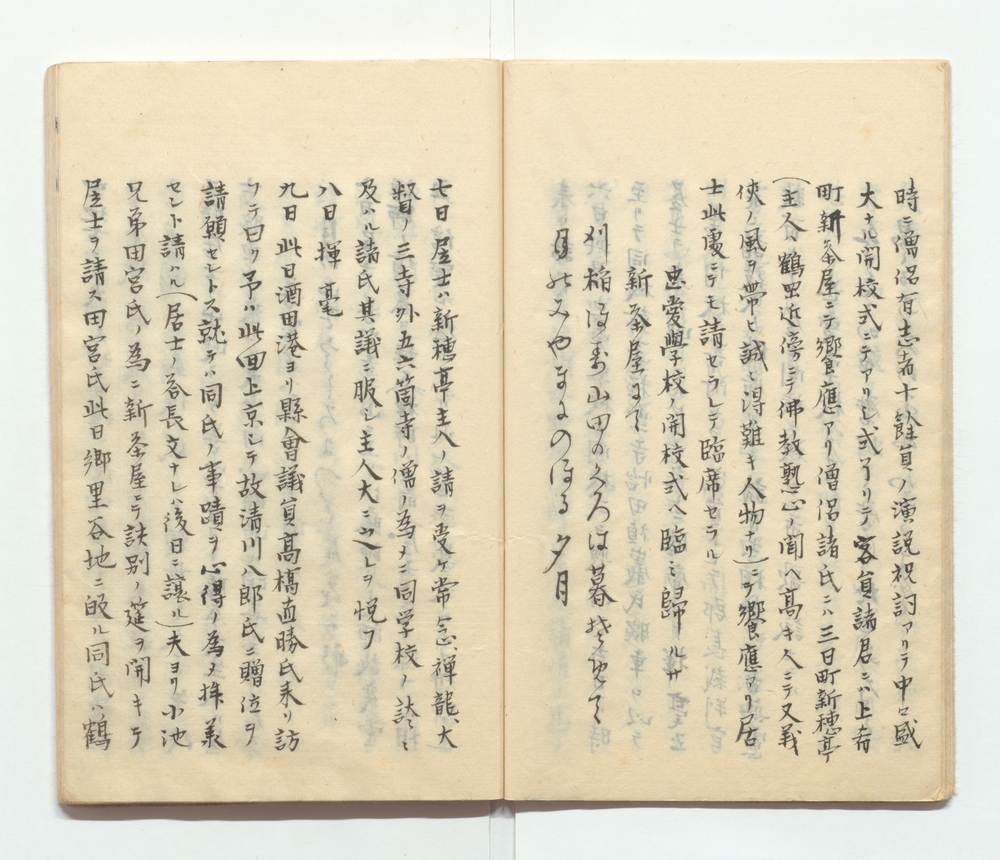 時ニ僧侶有志者十餘員ノ演説祝詞アリテ中々盛
大ナル開校式ニテアリシ式了リテ客員諸君ニハ上肴
町新茶屋ニテ饗應アリ僧侶諸氏ニハ三日町新穂亭
(主人ハ鶴岡近傍ニテ佛教熱心ノ聞ヘ高キ人ニテ又義
侠ノ風ヲ帯ヒ誠ニ得難キ人物ナリ)ニテ饗應アリ居
士此處ニテモ請セラレテ臨席セラル
忠愛學校ノ開校式ヘ臨ミ歸ルサ
新茶屋にて
刈稲ほす山田のくろは暮そめて
月のみやまにのほる夕月
七日 居士ハ新穂亭主人ノ請ヲ受ケ常念、禪龍、大
督ノ三寺外五六箇寺ノ僧ノ為メニ同学校ノ訣ニ
及ハル諸氏其議ニ服シ主人大ニ之レヲ悦フ
八日 揮毫
九日 此日酒田港ヨリ縣會議員高橋直勝氏来リ訪
フテ曰ク予ハ此回上京シテ故清川八郎氏ニ贈位ヲ
請願セントス就テハ同氏ノ事蹟ヲ心得ノ為メ拝承
セント請ハル(居士ノ答長文ナレハ後日ニ譲ル)夫ヨリ小池
兄弟田宮氏ノ為ニ新茶屋ニテ訣別ノ筵ヲ開キテ
居士ヲ請ス田宮氏此日郷里谷地ニ皈ル同氏ハ鶴